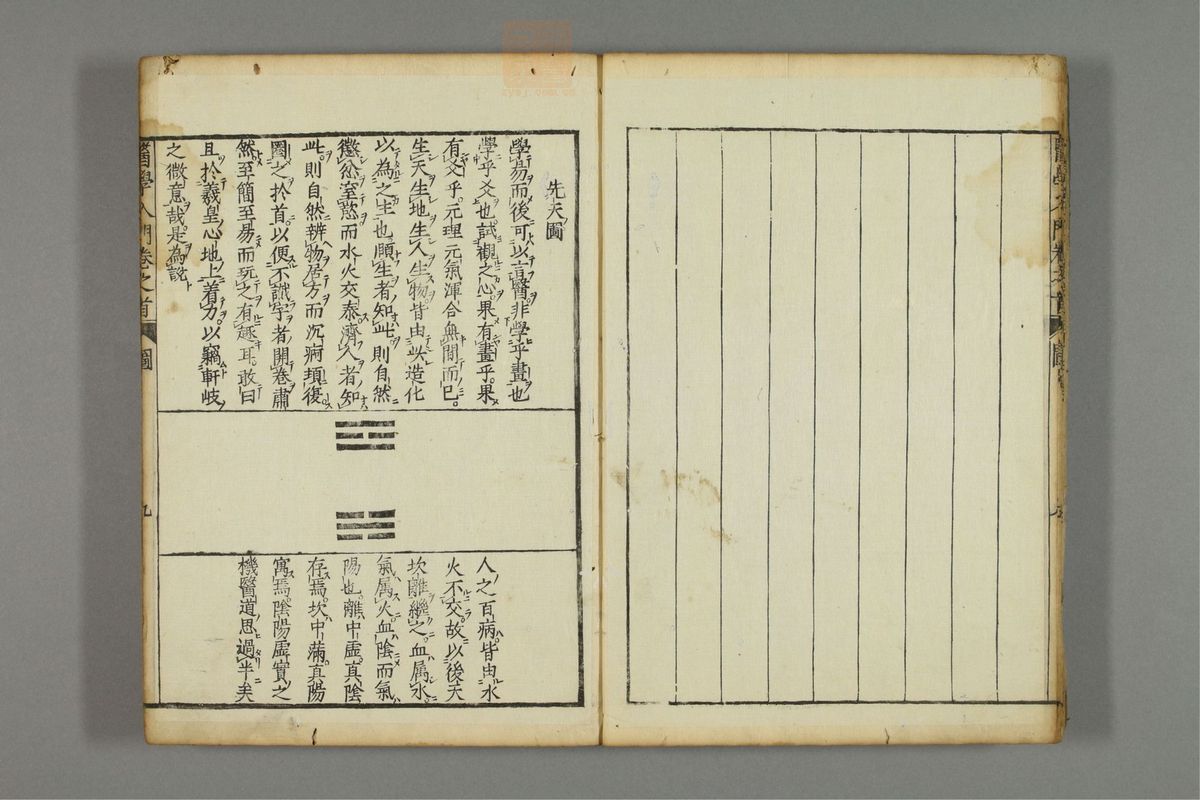 先天圖
學易而後可以言醫非學乎畫也
學乎爻也試觀之心果有畫乎果
有爻乎元理元氣渾合無間而已
生天生地生人生物皆由此造化
以為之生也頤生者知此則自然
懲忿窒慾而水火交泰濟人者知
此則自然辨物居方而沉痾頓復
圖之於首以便不識字者開卷肅
然至簡至易而玩之有趣耳敢曰
且於羲皇心地上着力以竊軒岐
之微意哉是為説
人之百病皆由水
火不交故以後天
坎離繼之血属水
氣属火血陰而氣
陽也離中虛真陰
存焉坎中滿真陽
寓焉陰陽虛實之
機醫道思過半矣
醫學入門卷之首
圖
九